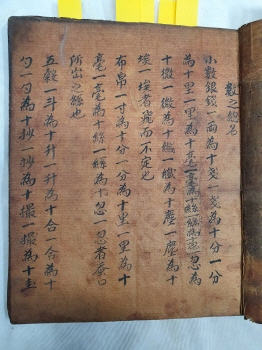 數之總名
小數銀錢一両為十爻一爻為十分一分
為十里一里為十毫一毫為十絲一絲為十忽一忽為
十微一微為十纖一纖為十塵一塵為十
埃一埃者飛而不定也
布帛一寸為十分一分為十里一里為十
毫一毫為十絲一絲為十忽一忽者蚕口
所出之絲也
五穀一斗為十升一升為十合一合為十
勺一勺為十抄一抄為十撮一撮為十圭